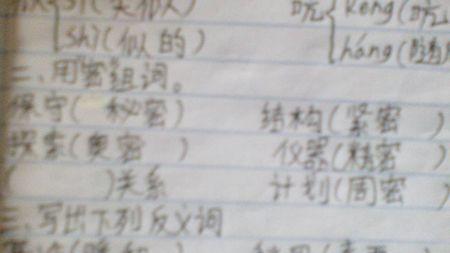 sì(关似人) 吭 kēng(吭
shì(似的) háng(
二、用"密"组词。
保守(秘密) 结构(紧密)
探索(奥密) 仪器(精密)
( )关系 计划(周密)
三、写出下列反义词